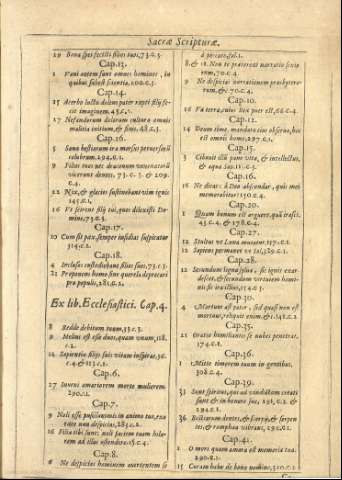 Sacræ Scripturæ.
19 Bona spei fecisti filios tuos, 73.c.3.
Cap.13.
1 Vani autem sunt omnes homines, in
quibus subest scientia, 200.c.1.
Cap.14.
15 Acerbo luctu dolens pater rapti filij fe-
cit imaginem, 45.c.1.
17 Nefandorum dolorum cultura omnis
malitia initium, & finis. 48.c.3.
Cap.16.
5 Sæua bestiarum ira morsus peruersorum
colubrorum. 294.c.1.
9 Filios tuos nec draconum venenatorum
vicerunt dentes, 73.c.3. & 209.
c.4.
22 Nix, & glacies sustinebant vim ignis
145.c.1.
26 Vt scirent filij tui, quos dilexisti Do-
mine, 73.c.3.
Cap.17.
10 Cum sit pax, semper insidias suspicatur
314.c.2.
Cap.18.
4 Inclusos custodiebant filios tuos, 73.c.3.
21 Properans homo sine querela deprecari
pro populis, 281.c.2.
Ex lib. Ecclesiastici. Cap.4.
8 Redde debitum tuum, 33.c.3.
9 Melius est esse duos, quam vnum, 118.
c.2.
12 Sapientia filijs suis vitam inspirat, 36.
c.4. & 123.c.1.
Cap.6.
27 Inueni amariorem morte mulierem.
290.c.1.
Cap.7.
9 Noli esse pusillanimis in animo tuo, exo-
rare non despicias, 283.c.2.
26 Filiæ tibi sunt: noli faciem tuam hila-
rem ad illas ostendere. 15.c.4.
Cap.8.
6 Ne despicias hominem auertentem se
à peccato,
8. & 12. Non te prætereat narratio senio-
rum, 70.c.4.
9 Ne despicias narrationem presbytero-
rum, & c. 70.c.4.
Cap.10.
16 Væ terra, cuius Rex puer est, 66.c.4.
Cap.12.
14 Deum time, mandata eius obserua, hoc
est omnis homo, 297.c.1.
Cap.15.
3 Cibauit illû pane vitæ, & intellectus,
& aqua 111.c.3.
Cap.16.
16 Ne dicas: à Deo abscondar, quis mei
memorabitur? 150.c.4.
Cap.20.
1 Quam bonum est arguere, quâ irasci.
43.c.4. & 178.c.4.
Cap.27.
12 Stultus vt Luna mutatur, 157.c.1.
12 Sapiens permanet vt Sol, 189.c.1.
Cap.28.
12 Secundum ligna siluæ, sic ignis exar-
descet, & secundum virtutem homi-
nis sic ira illius, 114.c.3.
Cap.30.
4 Mortuus est pater, sed quasi non est
mortuus, reliquit enim, & c. 142.c.2
Cap.35.
21 Oratio humiliantis se nubes penetrat,
174.c.1.
Cap.36.
1 Mitte timorem tuum in gentibus.
308.c.4.
Cap.39.
33 Sunt spiritus, qui ad vindictam creati
sunt & in bonum suos, 291.c.2. &
294.c.1.
36 Bestiarum dentes, & scorpij, & serpen-
tes, & romphæa vibrans, 292.c.1.
Cap.41.
1 O mors quam amara est memoria tua.
290.c.1.
15 Curam habe de bono nomine, 310.c.1